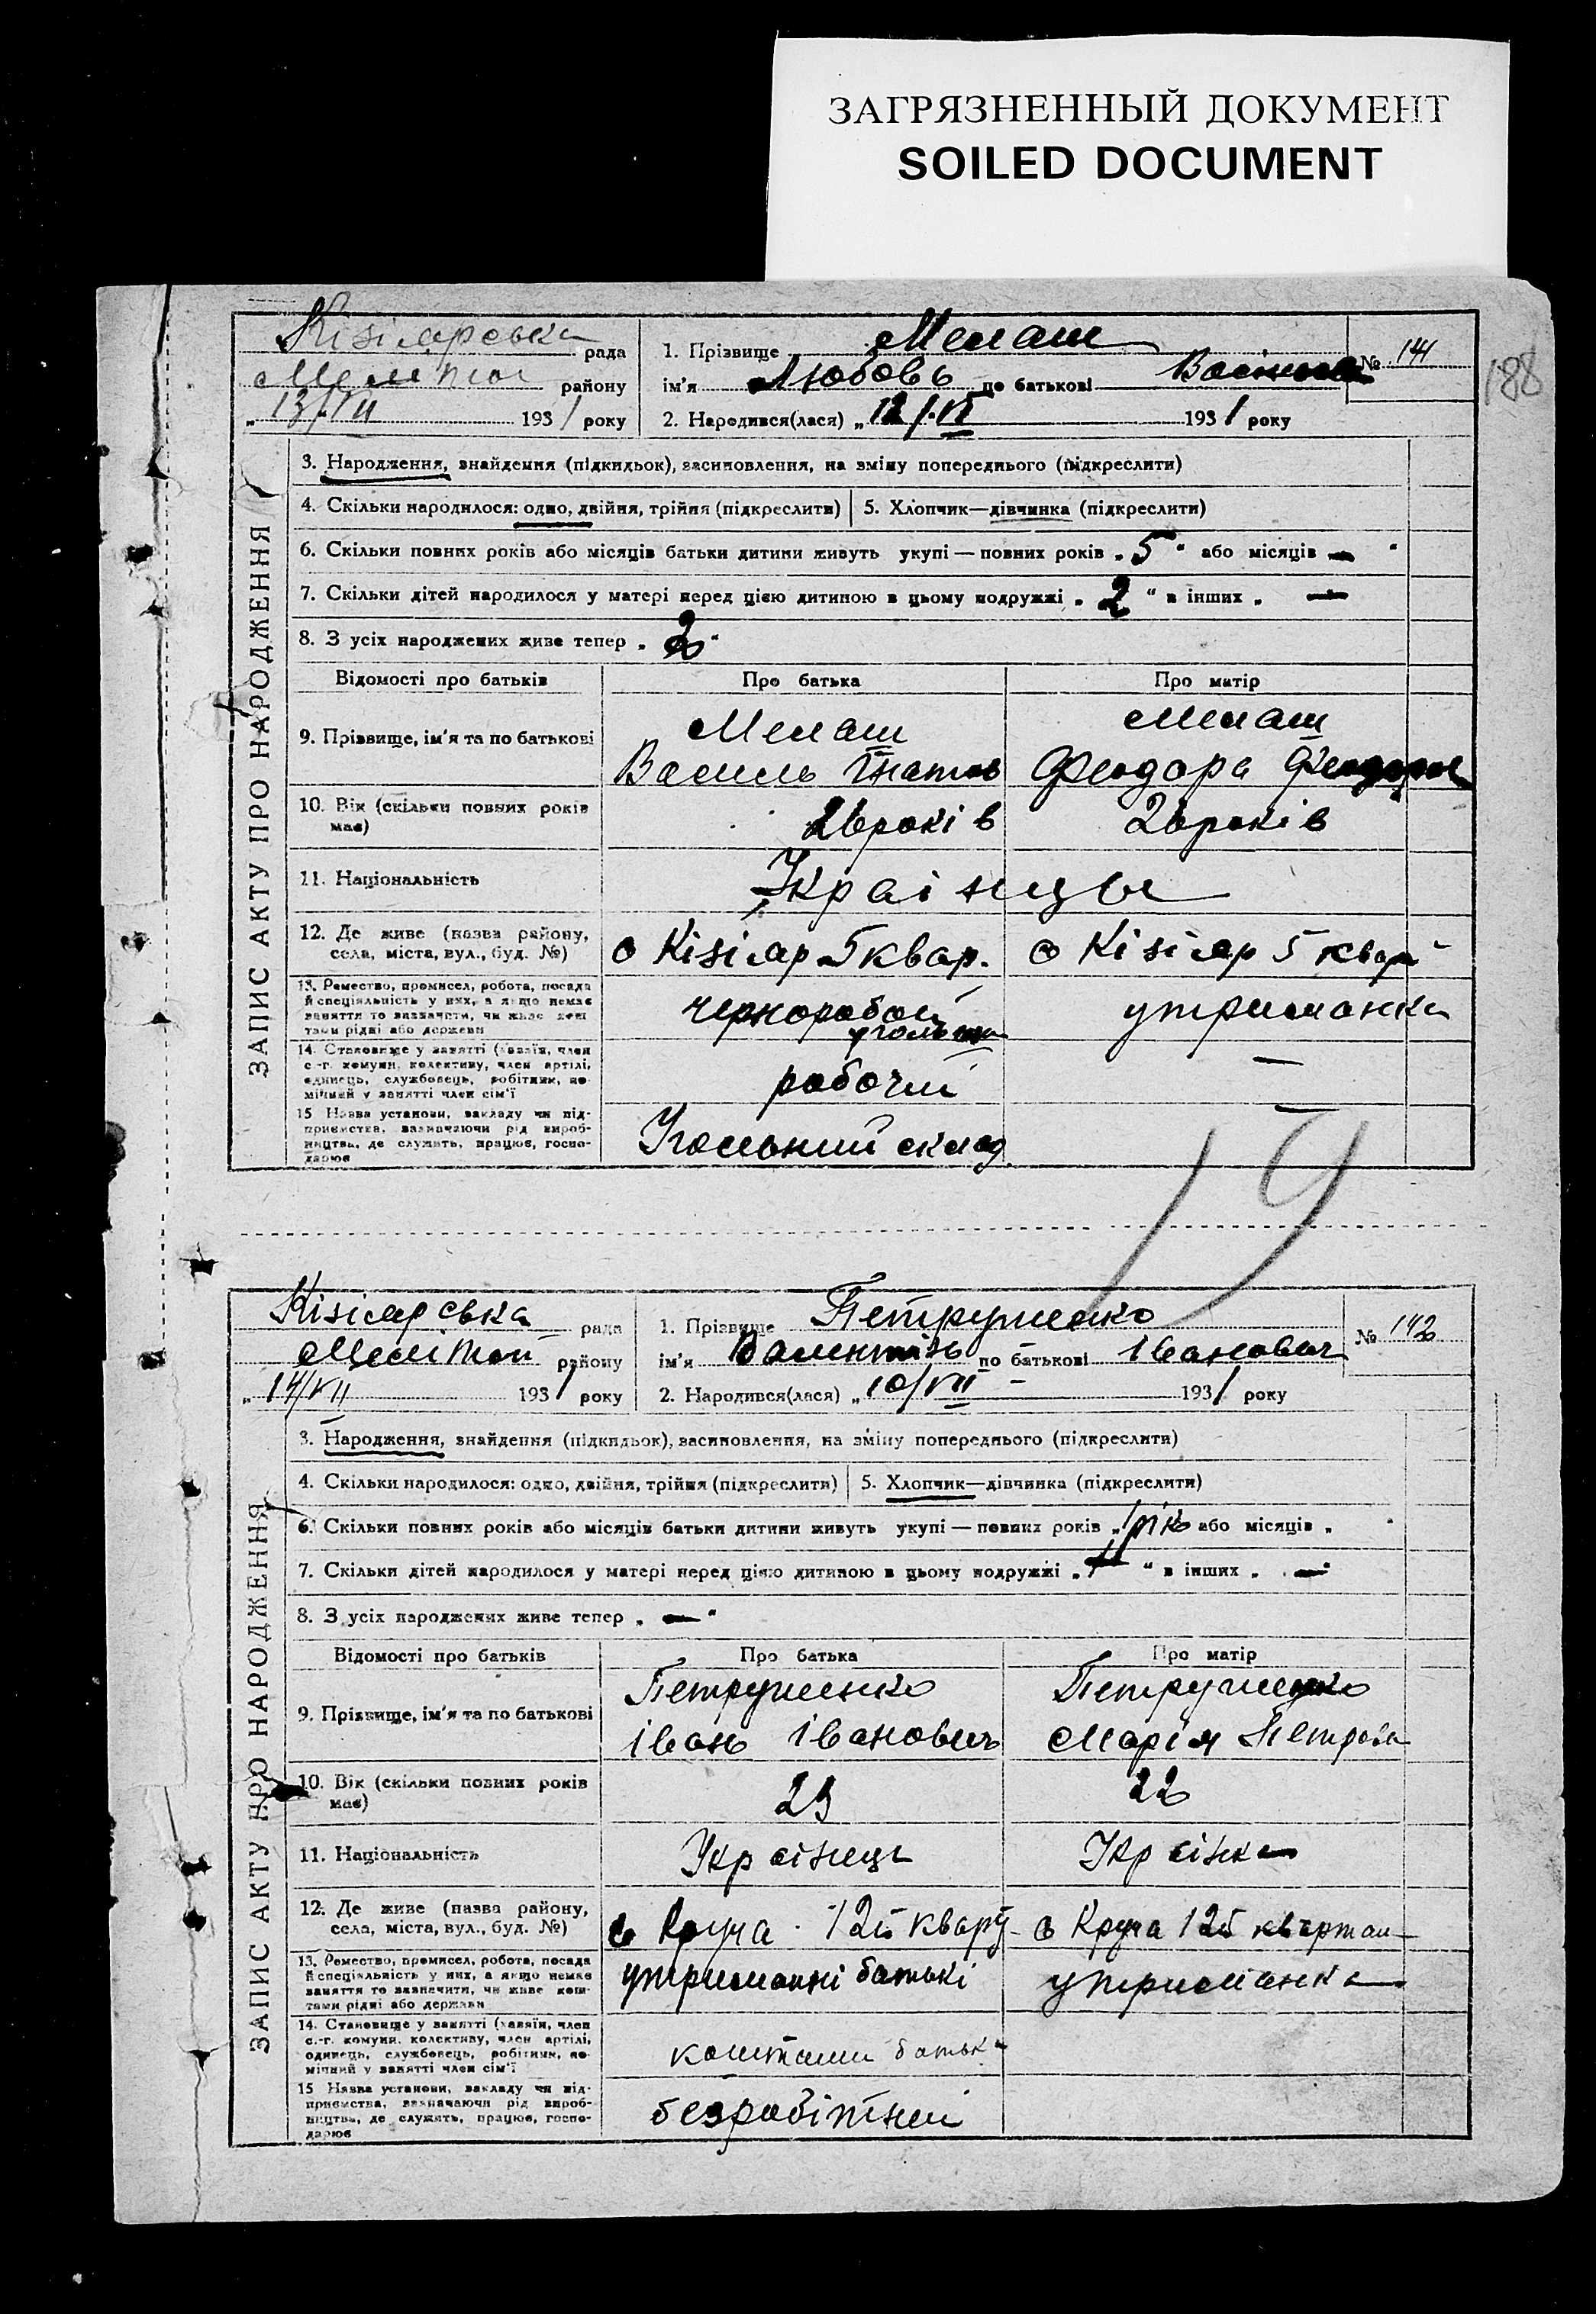 ЗАГРЯЗНЕННЫЙ ДОКУМЕНТ
SOILED DOCUMENT
188
ЗАПИС АКТУ ПРО НАРОДЖЕННЯ
Кізіярська рада
Меліттоп району
„ 13/VII 1931 року
1. Прізвище Мелаш
№ 141
ім'я Любовь по батькові
2. Народився(лася) „ 12/VI 1931 року
3. Народження, знайдення (підкидьок), засиновлення, на зміну попереднього (підкреслити)
4. Скільки народилося: одно, двійня, трійня (підкреслити) 5. Хлопчик—дівчинка (підкреслити)
6. Скільки повних років або місяців батьки дитини живуть укупі — повних років „ 5 “ або місяців — “
7. Скільки дітей народилося у матері перед цією дитиною в цьому подружжі „ 2 “ в інших „ —
8. З усіх народжених живе тепер „ 2 “
Відомості про батьків Про батька Про матір
9. Прізвище, ім'я та по батькові
Мелаш Мелаш
Василь Гнатов Феодора
10. Вік (скільки повних років має)
26 років 26 років
11. Національність
Українцы
12. Де живе (назва району, села, міста, вул., буд. №)
с Кізіяр 5 квар. с Кізіяр 5 квар
13. Ремество, промисел, робота, посада
й спеціяльність у них, а якщо немає
заняття то зазначити, чи живе кош
тами рідні або держави
чорноробоч утриманка
14. Становище у занятті (хазяїн, член
с.-г. комуни, колективу, член артілі,
одинець, службовець, робітник, по-
мічний у занятті член сім'ї
рабочий —
15 Назва установи, закладу чи під-
приємства, зазначаючи рід вироб-
ництва, де служить, працює, госпо-
дарює
Угольний склад —
19
ЗАПИС АКТУ ПРО НАРОДЖЕННЯ
Кізіярська рада
Мелітоп району
„ 14/VII 1931 року
1. Прізвище Петрушенко
№ 142
ім'я Валентінь по батькові Іванович
2. Народився(лася) „ 10/VII – 1931 року
3. Народження, знайдення (підкидьок), засиновлення, на зміну попереднього (підкреслити)
4. Скільки народилося: одно, двійня, трійня (підкреслити) 5. Хлопчик—дівчинка (підкреслити)
6. Скільки повних років або місяців батьки дитини живуть укупі — повних років „ 1 рік або місяців „ “
7. Скільки дітей народилося у матері перед цією дитиною в цьому подружжі „ “ в інших „ — “
8. З усіх народжених живе тепер „ — “
Відомості про батьків Про батька Про матір
9. Прізвище, ім'я та по батькові
Петрушенко Петрушенко
Івань Івановичь Марія Петрова
10. Вік (скільки повних років має)
23 22
11. Національність
Українець Українка
12. Де живе (назва району, села, міста, вул., буд. №)
с Круча 12й кварт с Круча 12й квартал
13. Ремество, промисел, робота, посада
й спеціяльність у них, а якщо немає
заняття то зазначити, чи живе кош
тами рідні або держави
утриманні батькі утриманка
14. Становище у занятті (хазяїн, член
с.-г. комуни, колективу, член артілі,
одинець, службовець, робітник, по-
мічний у занятті член сім'ї
коштами батьк
15 Назва установи, закладу чи під-
приємства, зазначаючи рід вироб-
ництва, де служить, працює, госпо-
дарює
безробітний